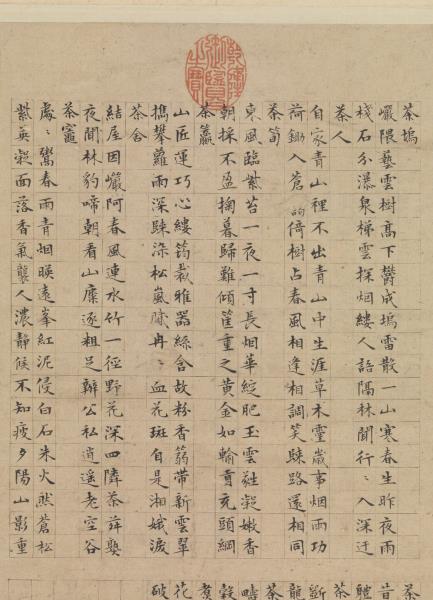 茶塢
巗隈藝雲樹高下欝成塢雷散一山寒春生昨夜雨
棧石分瀑泉梯雲探烟縷人語隔林聞行〻入深迂
茶人
自家青山裡不出青山中生涯草木靈歲事烟雨功
荷鋤入蒼靄倚樹占春風相逢相調笑歸路還相同
茶筍
東風臨紫苔一夜一寸長烟華綻肥玉雲甤凝嫩香
朝採不盈掬暮歸難傾筐重之黃金如輸貢充頭綱
茶籯
山匠運巧心縷筠裁雅器絲含故粉香蒻帶新雲翠
攜攀蘿雨深歸染松嵐膩冉〻血花斑自是湘娥淚
茶舍
結屋因巗阿春風連水竹一徑野花深四隣茶荈熟
夜聞林豹啼朝看山麋逐粗足辦公私逍遙老空谷
茶竈
處〻鬻春雨青烟暎遠峯紅泥侵白石朱火然蒼松
紫英凝面落香氣襲人濃靜候不知疲夕陽山影重